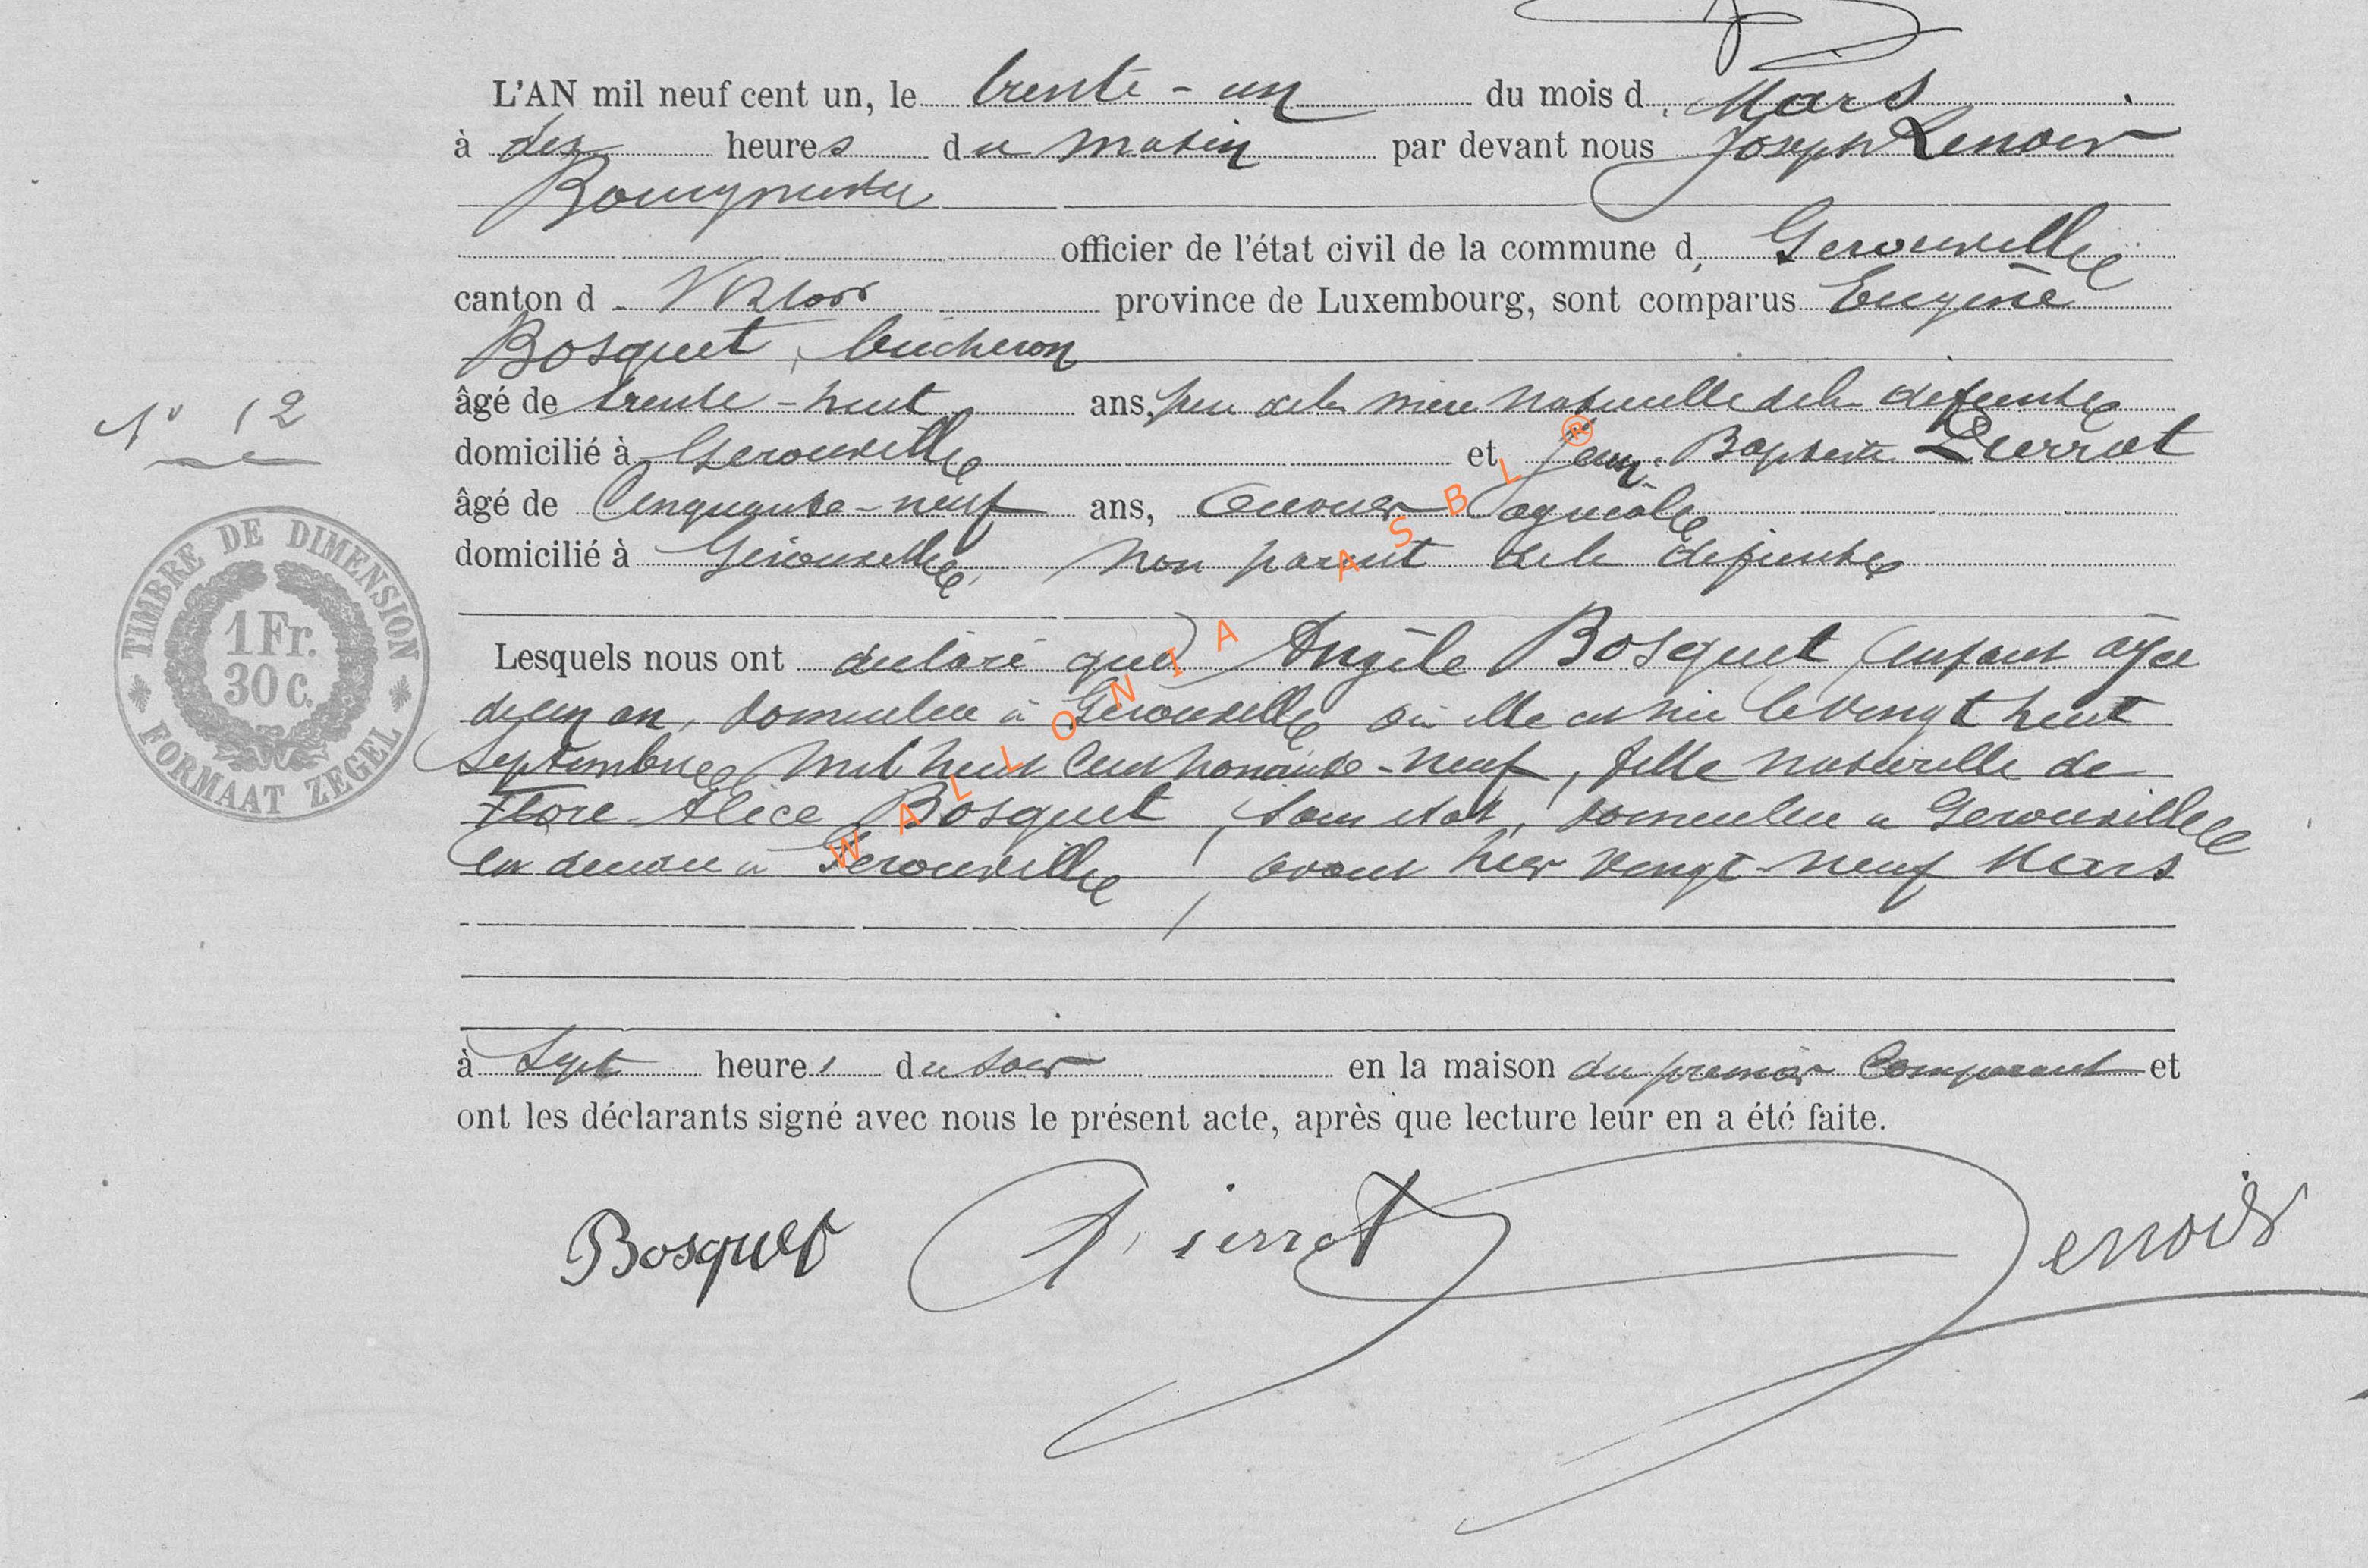 L'AN mil neuf cent un, le trente-un du mois d Mars
à dix heures du matin par devant nous Joseph Lenoir
Bourgmestre
officier de l'état civil de la commune d Gerouville
canton d Virton province de Luxembourg, sont comparus Eugène
Bosquet, bûcheron
âgé de trente-huit ans, de la mère naturelle de la défunte
N° 12
domicilié à Gerouville et Jean-Baptiste Pierrot
âgé de Cinquante-neuf ans, Ouvrier agricole
domicilié à Gerouville, non parent de la défunte
Lesquels nous ont déclaré que Angèle Bosquet, enfant âgée
de un an, domiciliée à Gerouville où elle est née le vingt huit
Septembre mil huit cent nonante-neuf, fille naturelle de
Flore Alice Bosquet, sans état, domiciliée à Gerouville
est décédée à Gerouville, avant hier vingt-neuf Mars
à Sept heures du soir en la maison du premier Comparant et
ont les déclarants signé avec nous le présent acte, après que lecture leur en a été faite.
Bosquet Pierrot Lenoir
TIMBRE DE DIMENSION
1 Fr.
30 c.
FORMAAT ZEGEL
WALLONIA ASBL ®